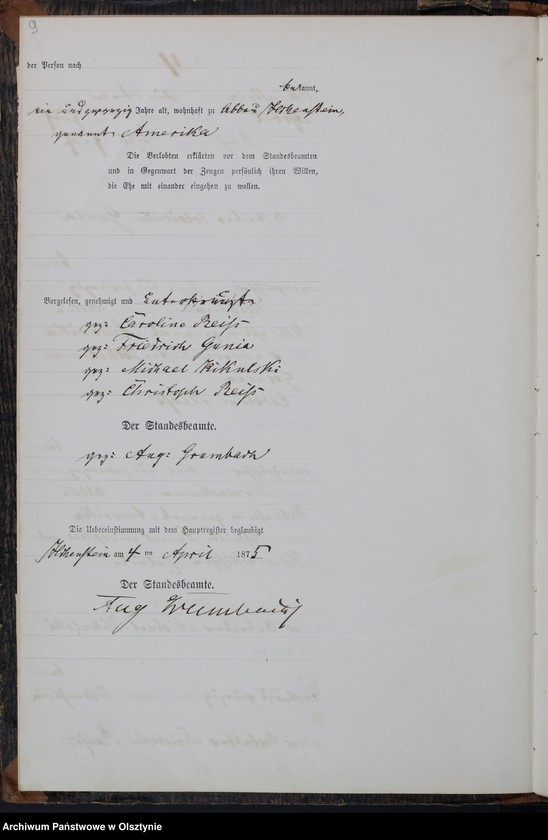 9
der Person nach
bekannt,
ein und zwanzig Jahre alt, wohnhaft zu Abbau Hohenstein,
genannt Amerika
Die Verlobten erklärten vor dem Standesbeamten
und in Gegenwart der Zeugen persönlich ihren Willen,
die Ehe mit einander eingehen zu wollen.
Vorgelesen, genehmigt und
gez: Caroline Reiss
gez: Friedrich Gunia
gez: Michael Nikulski
gez: Christoph Reiss
Der Standesbeamte.
gez: Aug: Grambach
Die Uebereinstimmung mit dem Hauptregister beglaubigt
Hohenstein am 4 ten April 1875
Der Standesbeamte.
Aug Grumbach
Archiwum Państwowe w Olsztynie